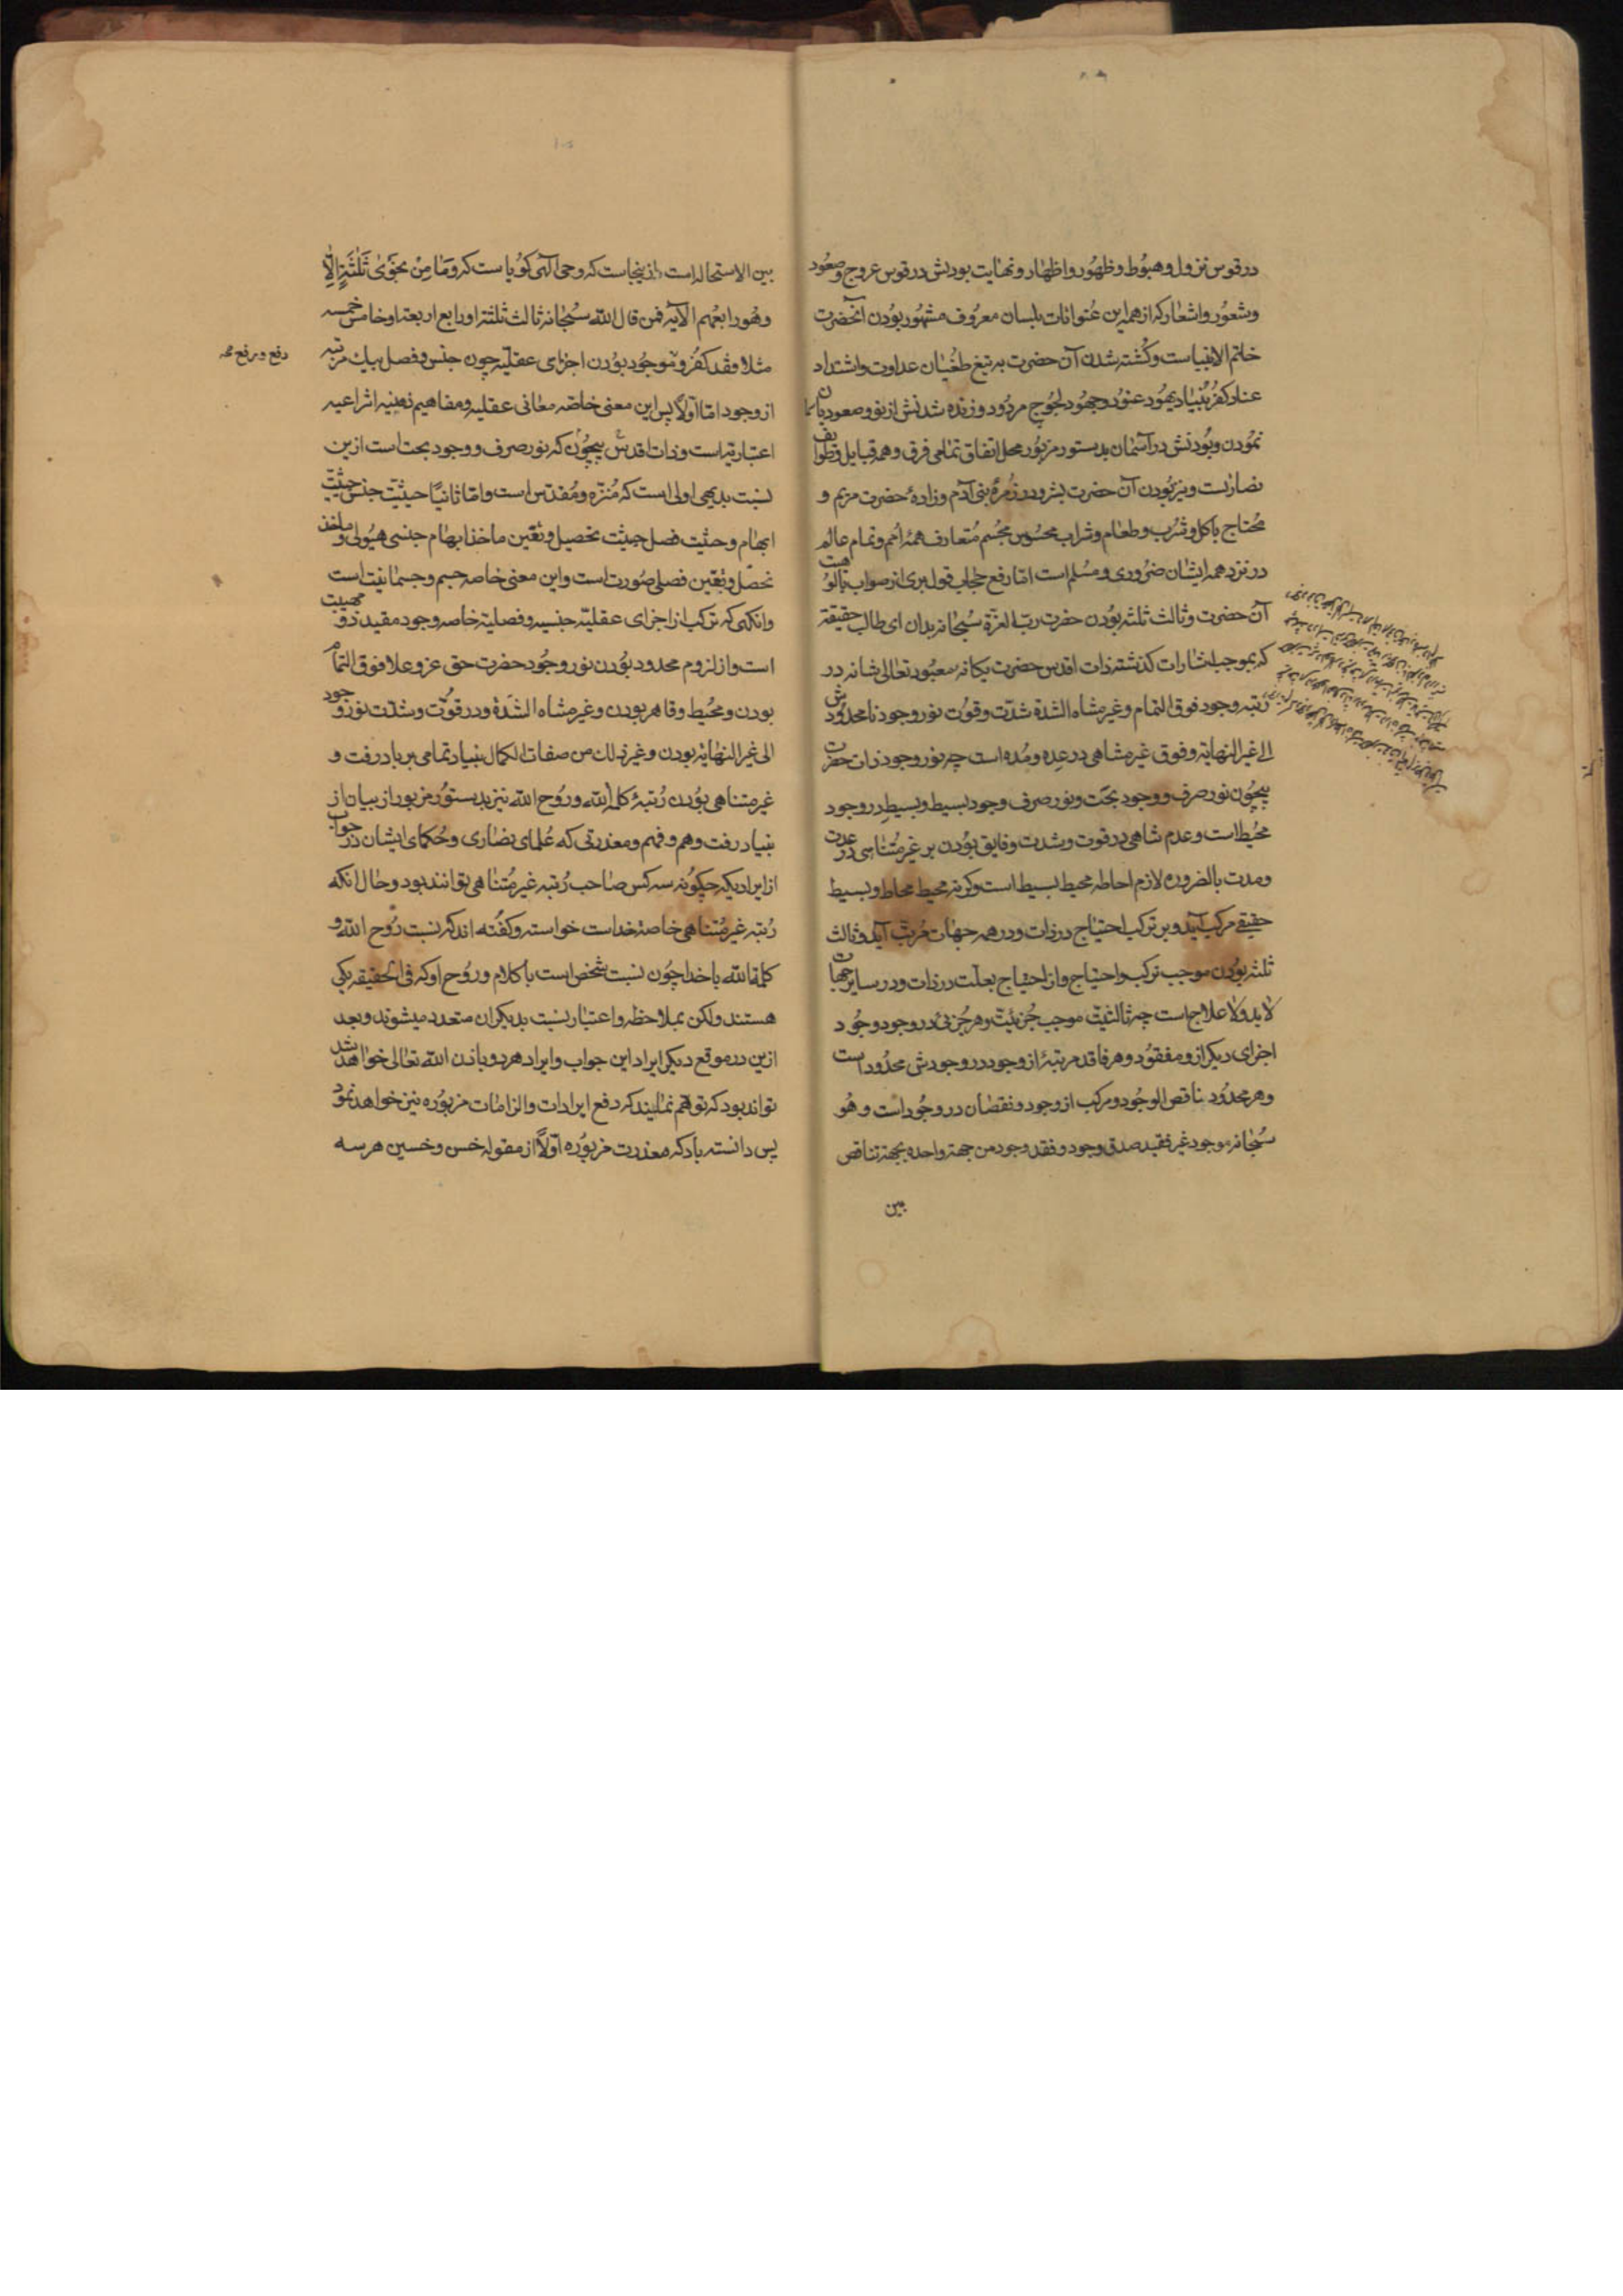 در قوس نزول و هبوط و ظهور و اظهار و نهایت بودنش در قوس عروج و صعود
و شعور و اشعار که از همه این عنوانات بلسان معروف مشهور بودن آنحضرت
خاتم الانبیاست و کشته شدن آن حضرت به تیغ طغیان عداوت و اشتداد
عناد کفر بنیاد یهود عنود و جهود لجوج مردود و زنده شدنش از نو و صعود باسمان
نمودن و بودنش در آسمان بدستور مزبور محل اتفاق تمامی فرق و همه قبایل و طوایف
نصاراست و نیز بودن آن حضرت بشر و در زمرهٔ بنی آدم و زادهٔ حضرت مریم و
محتاج باکل و شرب و طعام و شراب محسوس مجسم متعارف همهٔ امم و تمام عالم
در نزد همه ایشان ضروری و مسلم است اما رفع حجاب قول بری از صواب بالوهیت
آن حضرت و ثالث ثلثه بودن حضرت رب العزة سبحانه بدان ای طالب حقیقة
که بموجب اشارات گذشته ذات اقدس حضرت یگانه معبود تعالی شانه در
رتبه وجود فوق التمام و غیر متناه الشدة شدت و قوت نور وجود نامحدودش
الی غیر النهایة و فوق غیر متناهی در عده و مده است چه نور وجود ذات حضرت
بیچون نور صرف و وجود بحت و نور صرف وجود بسیط و بسیط در وجود
محیط است و عدم تناهی در قوت و شدت و فایق بودن بر غیر متناهی در عدت
و مدت بالضروره لازم احاطه محیط بسیط است و گرنه محیط محاط و بسیط
حقیقی مرکب آید و بر ترکب احتیاج در ذات و در همه جهات مرتب آید و ثالث
ثلثه بودن موجب ترکب و احتیاج و از احتیاج بعلت در ذات و در سایر جهات
لابد و لا علاج است چه ثالثیت موجب جزئیت و هر جزئی در وجود وجود
اجزای دیگر ازو مفقود و هر فاقد مرتبهٔ از وجود در وجودش محدود است
و هر محدود ناقص الوجود و مرکب از وجود و نقصان در وجود است و هو
سبحانه موجود غیر فقید صدق وجود و فقد وجود من جهة واحده بجهة تناقض
بین
بین الاستحاله است از ینجاست که وحی الهی گویاست که وما من نجوی ثلثة الا
و هو رابعهم الآیه فمن قال الله سبحانه ثالث ثلثة او رابع اربعة او خامس خمسه
مثلا فقد کفر و موجود بودن اجزای عقلیه چون جنس و فصل بیک مرتبه
دفع و رفع
از وجود اما اولا پس این معنی خاصه معانی عقلیه و مفاهیم ذهنیه انتزاعیه
اعتباریه است و ذات اقدس بیچون که نور صرف و وجود بحت است ازین
نسبت بدیهی اولی است که منزه و مقدس است و اما ثانیا حیثیت جنس حیثیت
ابهام و حیثیت فصل حیثیت تحصیل و تعین ماخذ ابهام جنسی هیولی و ماخذ
تحصل و تعین فصلی صورت است و این معنی خاصه جسم و جسمانیت است
وانگهی که ترکب از اجزای عقلیه جنسیه و فصلیه خاصه وجود مقید ذو مهیت
است و از لزوم محدود بودن نور وجود حضرت حق عز و علا فوق التمام
بودن و محیط و قاهر بودن و غیر متناه الشدة و در قوت و شدت نور وجود
الی غیر النهایة بودن و غیر ذلک من صفات الکمال بنیاد تمامی بر باد رفت و
غیر متناهی بودن رتبهٔ کلمة الله و روح الله نیز بدستور مزبور از بیان از
بنیاد رفت و هم و فهم و معذرتی که علمای نصاری و حکمای ایشان در جواب
از ایراد یکه چگونه سه کس صاحب رتبه غیر متناهی توانند بود و حال انکه
رتبه غیر متناهی خاصهٔ خداست خواسته و گفته اند که نسبت روح الله و
کلمة الله با خدا چون نسبت شخص است با کلام و روح او که فی الحقیقه یکی
هستند ولکن بملاحظه و اعتبار نسبت بدیگران متعدد میشوند و بعد
ازین در موقع دیگر ایراد این جواب و ایراد هر دو باذن الله تعالی خواهد شد
تواند بود که توهم نمایند که دفع ایرادات و الزامات مزبوره نیز خواهد نمود
پس دانسته باد که معذرت مزبوره اولا از مقوله خسن و خسین هر سه